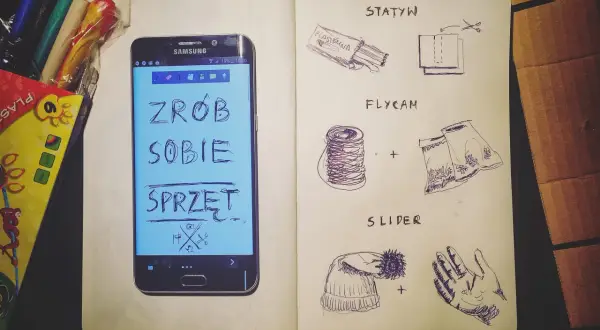 SAMSUNG
ZRÓB
SOBIE
SPRZĘT
STATYW
PLASTELINA
FLYCAM
SLIDER
PLAS
6